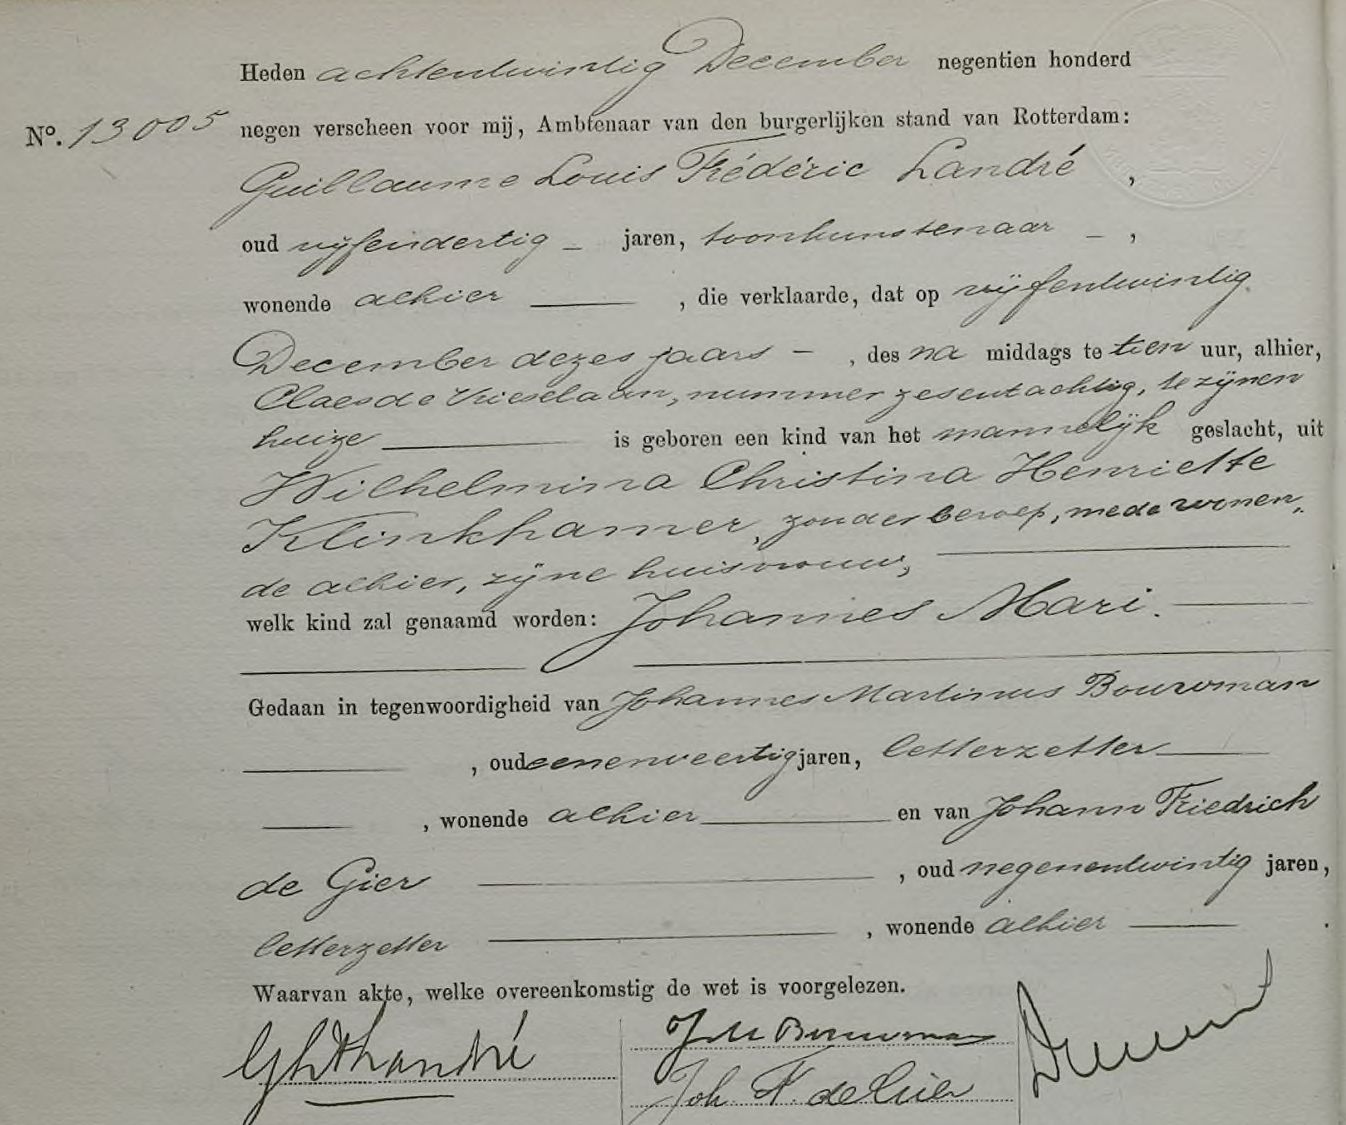 Heden achtentwintig December negentien honderd
No. 13005 negen verscheen voor mij, Ambtenaar van den burgerlijken stand van Rotterdam:
Guillaume Louis Frédéric Landré ,
oud vijfendertig – jaren, toonkunstenaar – ,
wonende alhier , die verklaarde, dat op vijfentwintig
December dezes jaars – , des na middags te tien uur, alhier,
Claes de Vrieselaan, nummer zesentachtig, te zijnen
huize is geboren een kind van het mannelijk geslacht, uit
Wilhelmina Christina Henriette
Klinkhamer, zonder beroep, mede wonen„
de alhier, zijne huisvrouw,
welk kind zal genaamd worden: Johannes Mari.
Gedaan in tegenwoordigheid van Johannes Martinus Bouwman
, oud eenenveertig jaren, letterzetter
, wonende alhier en van Johann Friedrich
de Gier , oud negenentwintig jaren,
letterzetter , wonende alhier .
Waarvan akte, welke overeenkomstig de wet is voorgelezen.
GLFLandré
J M Bouwman
Joh. F. de Gier